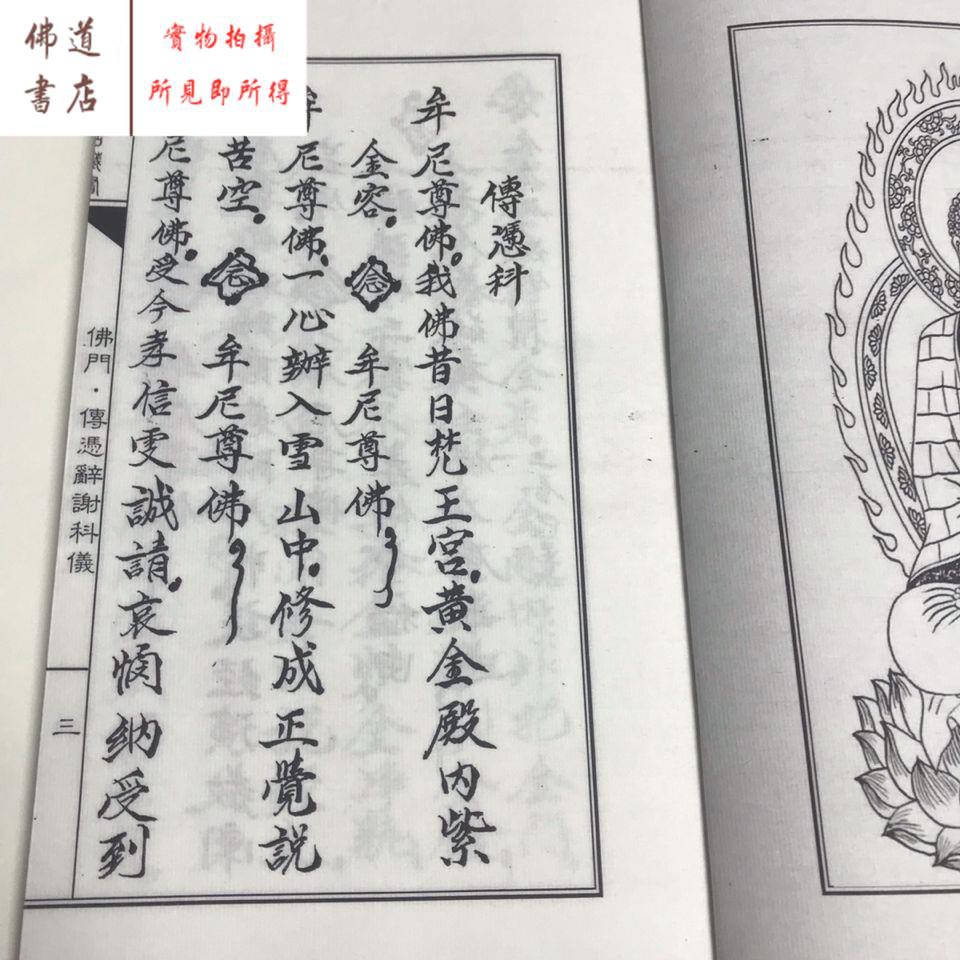 佛道書店
實物拍攝
所見即所得
傳憑科
牟尼尊佛。我佛昔日梵王宮。黃金殿內紫
金容。念 牟尼尊佛
牟尼尊佛。一心辦入雪山中。修成正覺說
苦空。念 牟尼尊佛
尼尊佛。受今孝信雯誠請。哀憫納受到
佛門·傳憑辭謝科儀
三